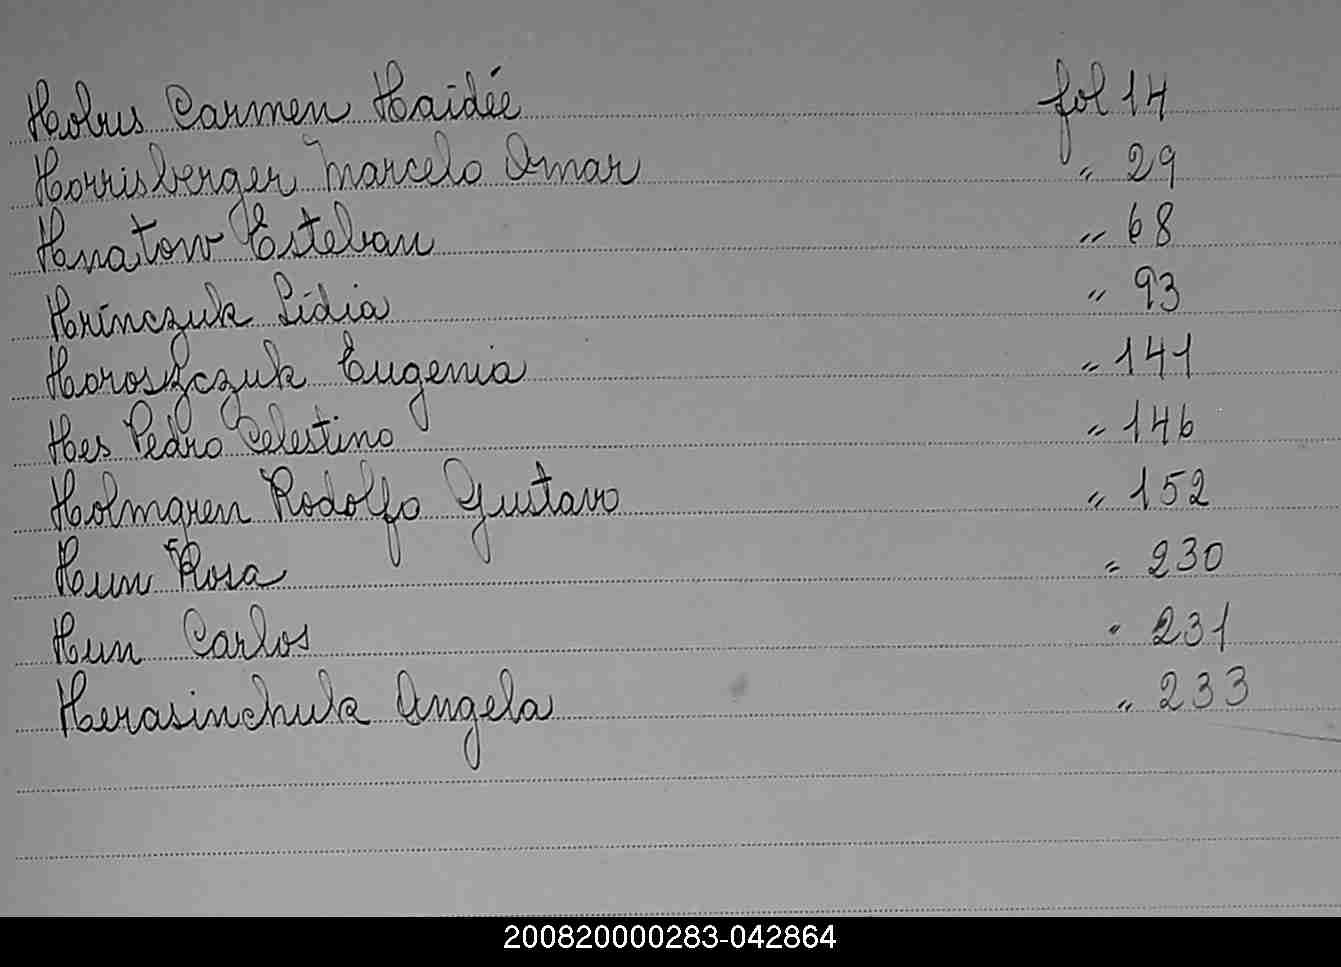 Hobus Carmen Haidée fol 14
Horrisberger Marcelo Omar " 29
Hnatow Esteban " 68
Hrinczuk Lidia " 93
Horoszczuk Eugenia " 141
Hes Pedro Celestino " 146
Holmgren Rodolfo Gustavo " 152
Hun Rosa " 230
Hun Carlos " 231
Herasinchuk Angela " 233
200820000283-042864